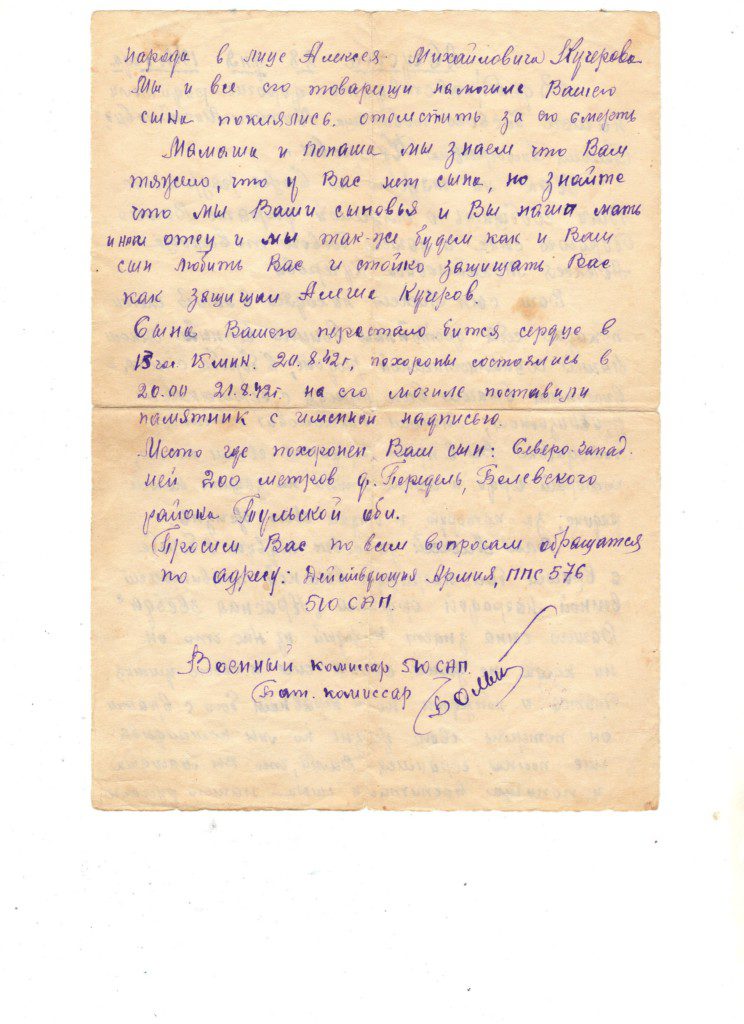 народа в лице Алексея Михайловича Кучерова
Мы и все его товарищи на могиле Вашего
сына поклялись отомстить за его смерть
Мамаша и Попаша мы знаем что Вам
тяжело, что у Вас нет сына, но знайте
что мы Ваши сыновья и Вы наша мать
и наш отец и мы так-же будем как и Ваш
сын любить Вас и стойко защищать Вас
как защищал Алеша Кучеров.
Сына Вашего перестало битса сердце в
15 час. 15 мин. 20.8.42г, похороны состоялись в
20.00 21.8.42г на его могиле поставили
памятник с именной надписью.
Место где похоронен Ваш сын: Северо-запад.
ней 200 метров д. Передель, Белевского
района Тульской обл.
Просим Вас по всем вопросам обращатся
по адресу: Действующая Армия, ППС 576
510 САП.
Военный комиссар 510 САП.
Бат. комиссар